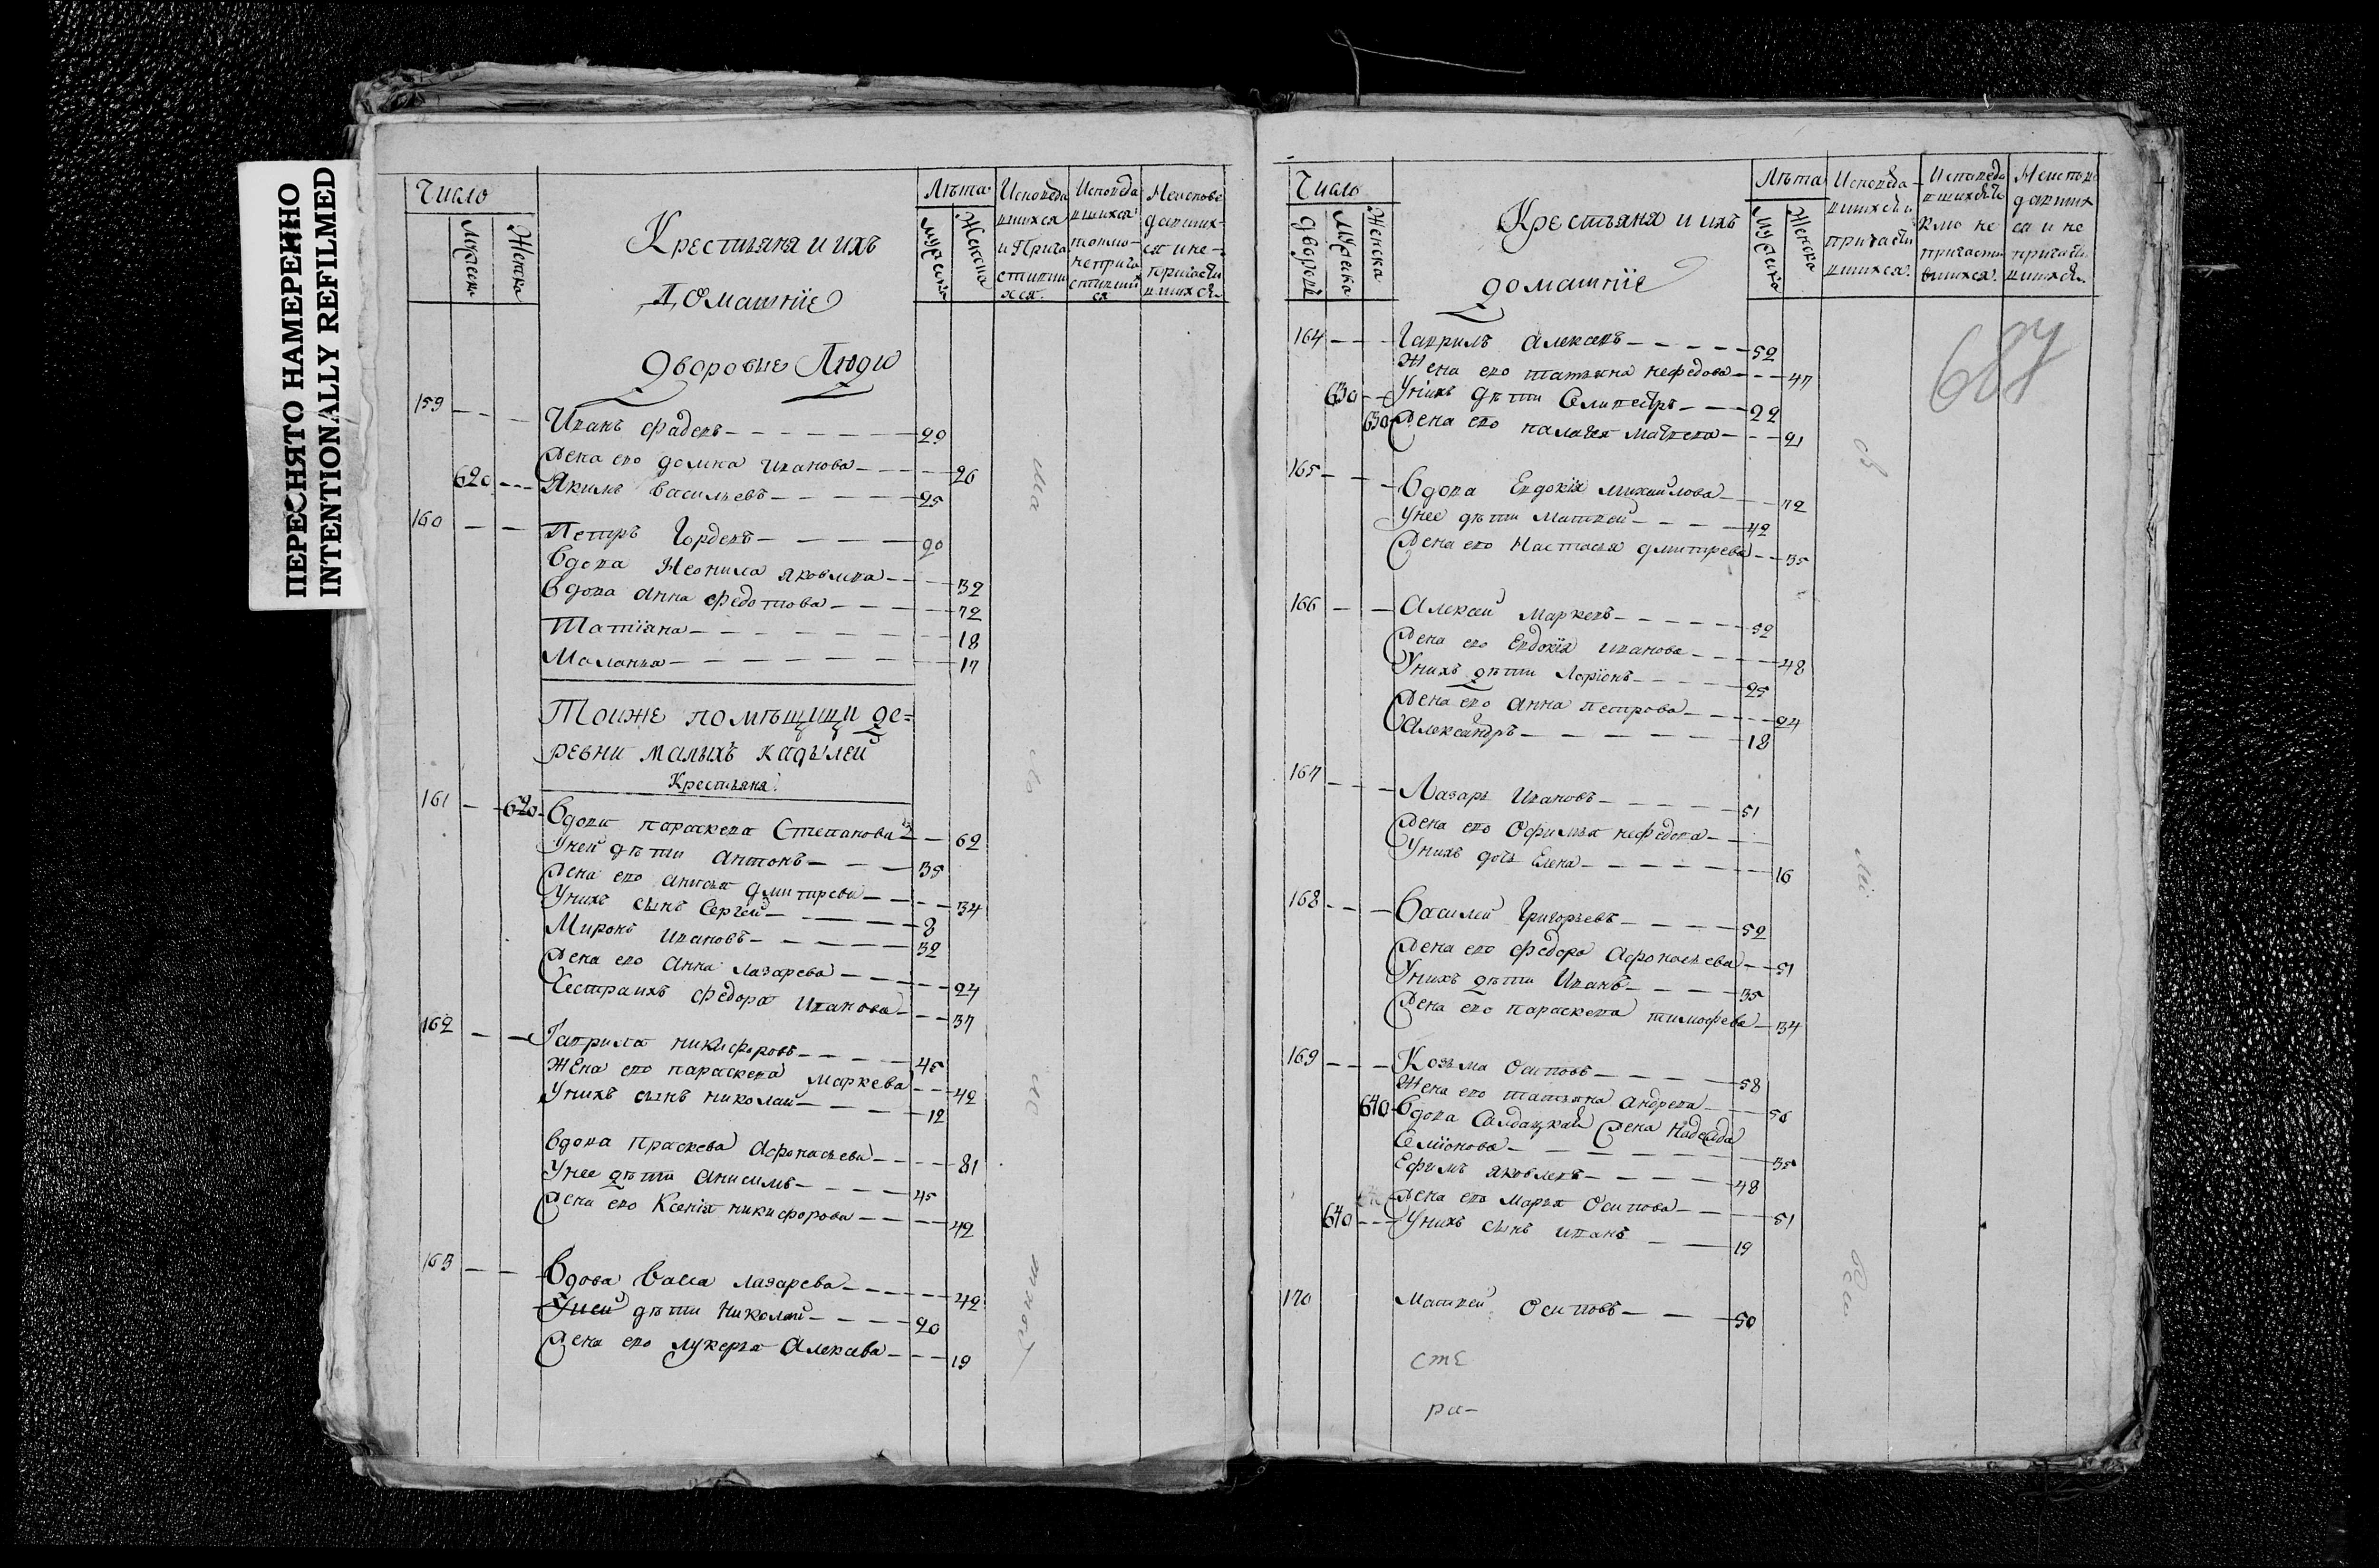 ПЕРЕСНЯТО НАМЕРЕННО
INTENTIONALLY REFILMED
Число
Мужеска
Женска
Крестьяня и ихъ
Домашніе
Лѣта
Мужска
Женска
Исповеда
вшихся
и Прича
стивши
хся
Исповеда
вшихся
токмо
неприча
стивших
ся
Неиспове
давших
ся и не
причасти
вшихся
Дворовые Люди
159 Иванъ Фадевъ 29
Жена ево домна Иванова 26
620 Якимъ Васильевъ 25
160 Петръ Гордевъ 20
Вдова Неонила яковлева 32
Вдова Анна Федотова 72
Татіяна 18
Маланья 17
Тоиже помѣщицы де=
ревни малыхъ кадылей
Крестьяня
161 620 Вдова параскева Степанова 62
Уней дѣти Антонъ 35
Жена ево Анисья дмитрева 34
Унихъ сынъ Сергей 8
Миронъ Ивановъ 32
Жена ево Анна Лазарева 24
Сестра ихъ Федора Иванова 37
162 Гаврила никифоровъ 45
Жена ево параскева Маркева 42
Унихъ сынъ николай 12
Вдова Праскева Афонасьева 81
Унее дѣти Анисимъ 45
Жена ево Ксенія никифорова 42
163 Вдова Васса лазарева 42
Уней дѣти Николай 20
Жена ево лукерья Алексева 19
Число
Дворовъ
Мужска
Женска
Крестьяня и ихъ
домашніе
Лѣта
Мужска
Женска
Исповеда
вшихся и
причасти
вшихся
Исповеда
вшихся
кмо не
причасти
вшихся
Неиспо
давших
ся и не
причасти
вшихся
687
164 Гаврилъ Алексевъ 52
Жена ево татьяна нефедова 47
630 Унихъ дѣти Селивестръ 22
630 Жена ево палагея Матвева 21
165 Вдова Евдокія михайлова 72
Унее дѣти Матвей 42
Жена ево Настасья дмитрева 35
166 Алексей Маркевъ 52
Жена ево Евдокія иванова 48
Унихъ дѣти Ларіонъ 25
Жена ево Анна петрова 24
Александръ 18
167 Лазарь Ивановъ 51
Жена ево Офимья нефедова
Унихъ дочь Елена 16
168 Василей Григорьевъ 52
Жена ево федора Афонасьева 51
Унихъ дѣти Иванъ 35
Жена ево параскева тимофева 34
169 Козьма Осиповъ 58
Жена ево татьяна Андрева 56
640 Вдова Салдацкая Жена Надежда
Семіонова 35
Ефимъ яковлевъ 48
Жена ево Марья Осипова 51
640 Унихъ сынъ иванъ 19
170 Матвей Осиповъ 50
сте
ра-